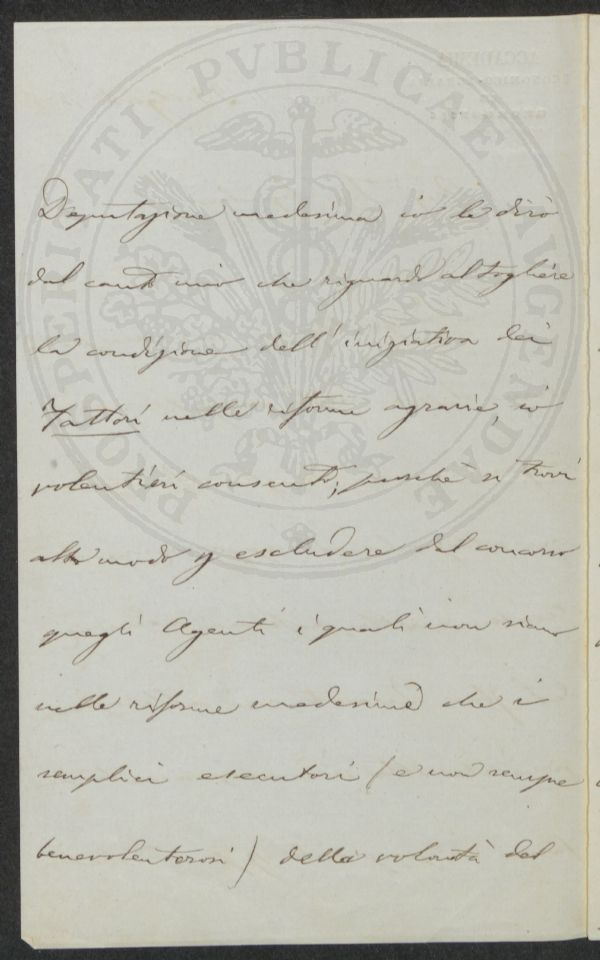 PROSPERITATI PVBLICAE AVGENDAE
Deputazione medesima io le dirò
dal canto mio che riguardo al togliere
la condizione dell'iniziativa dei
Fattori nelle riforme agrarie, io
volentieri consento, purchè si trovi
altro modo p escludere dal concorso
quegli Agenti i quali non siano
nelle riforme medesime che i
semplici esecutori (e non sempre
benevolenterosi) della volontà del